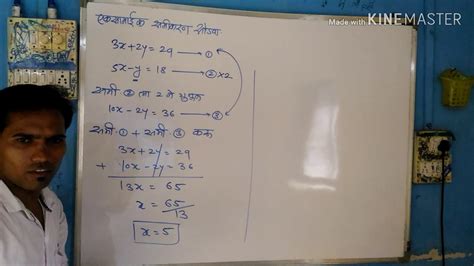 Made with KINEMASTER
एकसामाईक समीकरण सोडवा
3x+2y=29 → ①
5x-y=18 → ②×2
समी ② ला 2 ने गुणून
10x-2y=36 → ③
समी ① + समी ③ करू
3x+2y=29
+ 10x-2y=36
13x = 65
x = 65/13
x=5